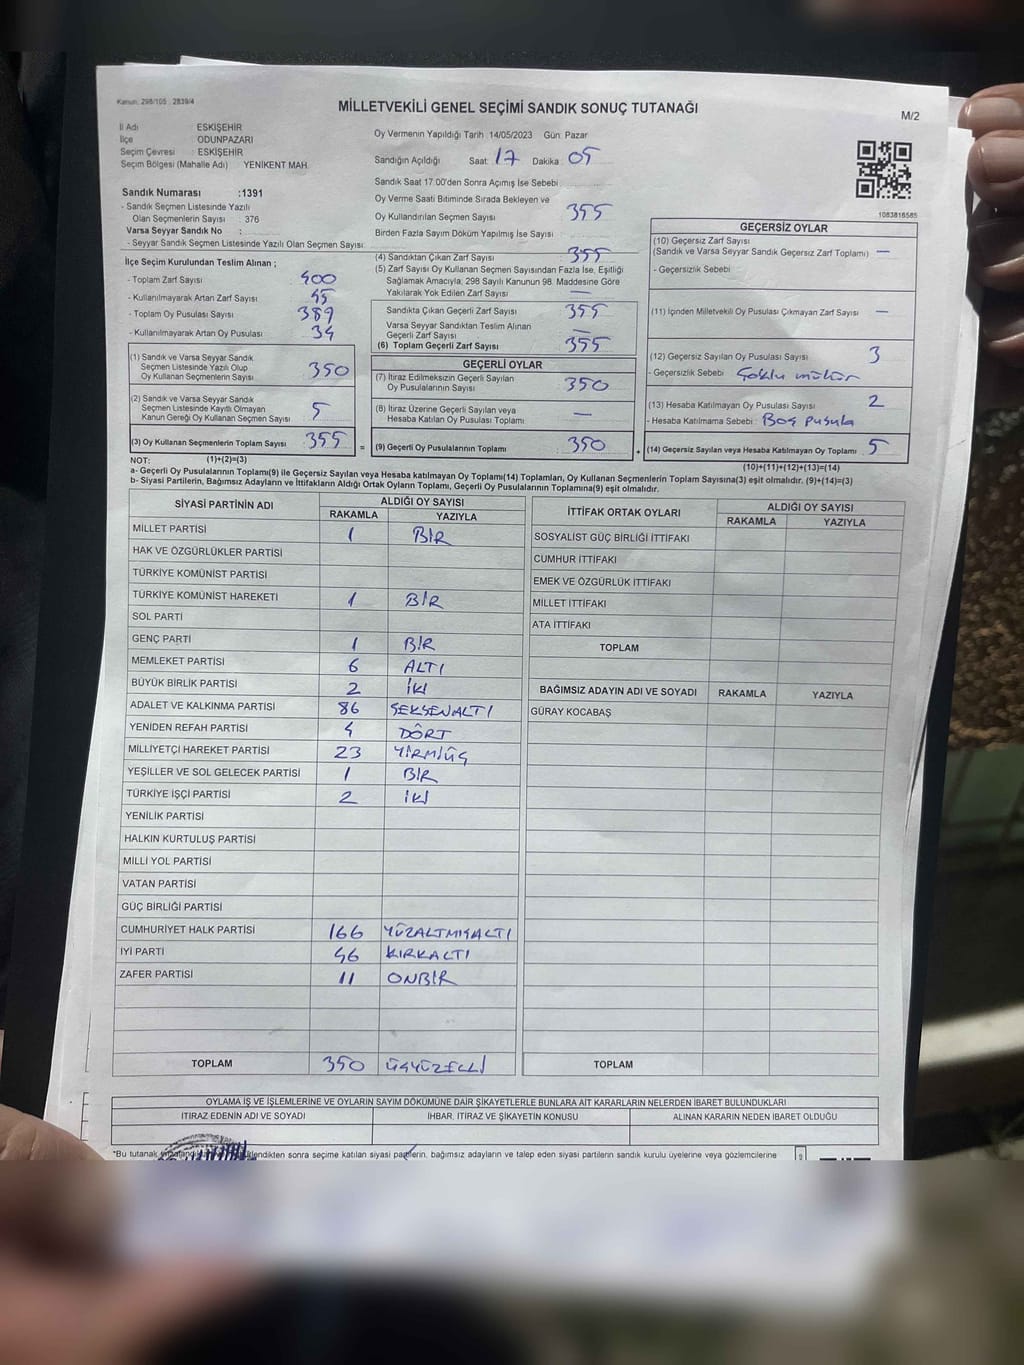 Kanun: 298/105 , 2839/4
MİLLETVEKİLİ GENEL SEÇİMİ SANDIK SONUÇ TUTANAĞI
M/2
İl Adı ESKİŞEHİR
İlçe ODUNPAZARI
Seçim Çevresi : ESKİŞEHİR
Seçim Bölgesi (Mahalle Adı) YENİKENT MAH.
Sandık Numarası :1391
- Sandık Seçmen Listesinde Yazılı
Olan Seçmenlerin Sayısı : 376
Varsa Seyyar Sandık No :
- Seyyar Sandık Seçmen Listesinde Yazılı Olan Seçmen Sayısı:
Oy Vermenin Yapıldığı Tarih : 14/05/2023 Gün: Pazar
Sandığın Açıldığı Saat: 17 Dakika : 05
Sandık Saat 17.00'den Sonra Açımış İse Sebebi:
Oy Verme Saati Bitiminde Sırada Bekleyen ve
Oy Kullandırılan Seçmen Sayısı 355
Birden Fazla Sayım Döküm Yapılmış İse Sayısı :
1083816585
İlçe Seçim Kurulundan Teslim Alınan ;
- Toplam Zarf Sayısı : 400
- Kullanılmayarak Artan Zarf Sayısı : 45
- Toplam Oy Pusulası Sayısı : 389
- Kullanılmayarak Artan Oy Pusulası : 34
(1) Sandık ve Varsa Seyyar Sandık
Seçmen Listesinde Yazılı Olup
Oy Kullanan Seçmenlerin Sayısı : 350
(2) Sandık ve Varsa Seyyar Sandık
Seçmen Listesinde Kayıtlı Olmayan
Kanun Gereği Oy Kullanan Seçmen Sayısı : 5
(3) Oy Kullanan Seçmenlerin Toplam Sayısı : 355
(4) Sandıktan Çıkan Zarf Sayısı : 355
(5) Zarf Sayısı Oy Kullanan Seçmen Sayısından Fazla İse, Eşitliği
Sağlamak Amacıyla; 298 Sayılı Kanunun 98. Maddesine Göre
Yakılarak Yok Edilen Zarf Sayısı : —
Sandıkta Çıkan Geçerli Zarf Sayısı : 355
Varsa Seyyar Sandıktan Teslim Alınan
Geçerli Zarf Sayısı : —
(6) Toplam Geçerli Zarf Sayısı : 355
GEÇERLİ OYLAR
(7) İtiraz Edilmeksizin Geçerli Sayılan
Oy Pusulalarının Sayısı : 350
(8) İtiraz Üzerine Geçerli Sayılan veya
Hesaba Katılan Oy Pusulaları Toplamı : —
= (9) Geçerli Oy Pusulalarının Toplamı : 350
GEÇERSİZ OYLAR
(10) Geçersiz Zarf Sayısı
(Sandık ve Varsa Seyyar Sandık Geçersiz Zarf Toplamı) : —
- Geçersizlik Sebebi :
(11) İçinden Milletvekili Oy Pusulası Çıkmayan Zarf Sayısı : —
(12) Geçersiz Sayılan Oy Pusulası Sayısı : 3
- Geçersizlik Sebebi : Çoklu mühür
(13) Hesaba Katılmayan Oy Pusulası Sayısı : 2
- Hesaba Katılmama Sebebi : Boş pusula
+ (14) Geçersiz Sayılan veya Hesaba Katılmayan Oy Toplamı : 5
NOT: (1)+(2)=(3)
(10)+(11)+(12)+(13)=(14)
a- Geçerli Oy Pusulalarının Toplamı(9) ile Geçersiz Sayılan veya Hesaba katılmayan Oy Toplamı(14) Toplamları, Oy Kullanan Seçmenlerin Toplam Sayısına(3) eşit olmalıdır. (9)+(14)=(3)
b- Siyasi Partilerin, Bağımsız Adayların ve İttifakların Aldığı Ortak Oyların Toplamı, Geçerli Oy Pusulalarının Toplamına(9) eşit olmalıdır.
SİYASİ PARTİNİN ADI ALDIĞI OY SAYISI
RAKAMLA YAZIYLA
MİLLET PARTİSİ 1 BİR
HAK VE ÖZGÜRLÜKLER PARTİSİ
TÜRKİYE KOMÜNİST PARTİSİ
TÜRKİYE KOMÜNİST HAREKETİ 1 BİR
SOL PARTİ
GENÇ PARTİ 1 BİR
MEMLEKET PARTİSİ 6 ALTI
BÜYÜK BİRLİK PARTİSİ 2 İKİ
ADALET VE KALKINMA PARTİSİ 86 SEKSENALTI
YENİDEN REFAH PARTİSİ 4 DÖRT
MİLLİYETÇİ HAREKET PARTİSİ 23 YİRMİÜÇ
YEŞİLLER VE SOL GELECEK PARTİSİ 1 BİR
TÜRKİYE İŞÇİ PARTİSİ 2 İKİ
YENİLİK PARTİSİ
HALKIN KURTULUŞ PARTİSİ
MİLLİ YOL PARTİSİ
VATAN PARTİSİ
GÜÇ BİRLİĞİ PARTİSİ
CUMHURİYET HALK PARTİSİ 166 YÜZALTMIŞALTI
İYİ PARTİ 46 KIRKALTI
ZAFER PARTİSİ 11 ONBİR
TOPLAM 350 ÜÇYÜZELLİ
İTTİFAK ORTAK OYLARI ALDIĞI OY SAYISI
RAKAMLA YAZIYLA
SOSYALİST GÜÇ BİRLİĞİ İTTİFAKI
CUMHUR İTTİFAKI
EMEK VE ÖZGÜRLÜK İTTİFAKI
MİLLET İTTİFAKI
ATA İTTİFAKI
TOPLAM
BAĞIMSIZ ADAYIN ADI VE SOYADI RAKAMLA YAZIYLA
GÜRAY KOCABAŞ
TOPLAM
OYLAMA İŞ VE İŞLEMLERİNE VE OYLARIN SAYIM DÖKÜMÜNE DAİR ŞİKAYETLERLE BUNLARA AİT KARARLARIN NELERDEN İBARET BULUNDUKLARI
İTİRAZ EDENİN ADI VE SOYADI İHBAR, İTİRAZ VE ŞİKAYETİN KONUSU ALINAN KARARIN NEDEN İBARET OLDUĞU
*Bu tutanak lendikten sonra seçime katılan siyasi partilerin, bağımsız adayların ve talep eden siyasi partilerin sandık kurulu üyelerine veya gözlemcilerine